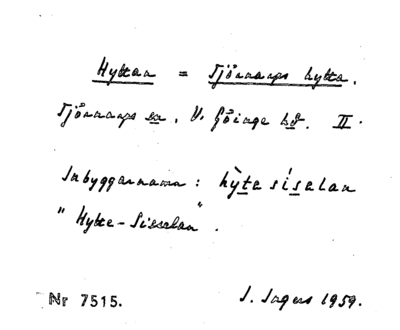 Hyttan = Tjörnarps hytta.
Tjörnarps sn, V. Göinge hd. II.
Inbyggarnamn: hỳte síselan
"Hytte-Sisselan".
Nr 7515. I. Ingers 1959.